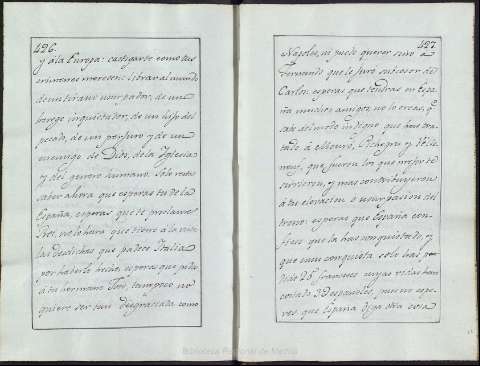 426
y á la Europa: castigarte como tus
crimenes merecen: librar al mundo
de un tirano usurpador, de un
perpe inquietador, de un hijo del
pecado, de un perjuro y de un
enemigo de Dios, de la Iglesia
y del genero humano. Solo resta
saber ahora que esperas tu de la
España, esperas que te proclame
Rei, no lo hará que tiene á la vista
las desdichas que padece Italia
por haberlo hecho, esperas que pida
á tu hermano Jose, tampoco no
quiere ser tan desgraciada como
427
Napoles, ni puede querer sino á
Fernando que le juro sucesor de
Carlos: esperas que tendras en Espa
ña muchos amigos, no lo creas, q.e
sabe del modo indigno que has tra
tado á Moureó, Pichegru y
que fueron los que mejor te
sirvieron, y mas contribuyeron
á tu elevacion o usurpacion del
trono: esperas que España con
fiese que la has conquistado, y
que muy conquista solo has per
dido 25 franceses cuyas vidas han
costado 3 españoles, pues no espe
res que España diga otra cosa
Biblioteca Regional de Madrid